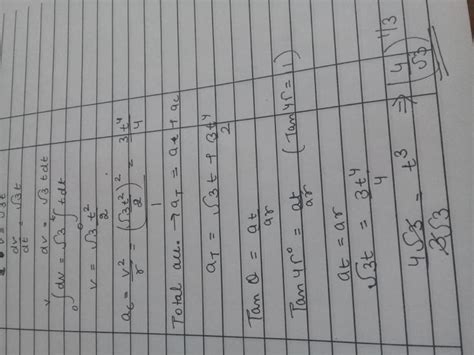 a = √3t
dv/dt = √3t
dv = √3 t dt
∫₀ᵛ dv = √3 ∫₀ᵗ t dt
v = √3 t²/2
ac = v²/r = (√3t²/2)²/1 = 3t⁴/4
Total acc. → aT = at + ac
aT = √3t + 3t⁴/2
Tan θ = at/ar
Tan 45° = at/ar (Tan 45 = 1)
at = ar
√3t = 3t⁴/4
4√3/3 = t³ ⇒ (4/√3)^1/3